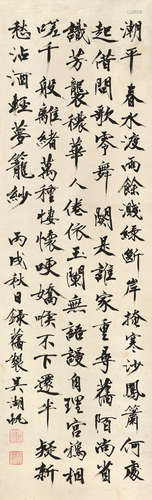 潮平春水渡雨餘濺綠斷岸掩寒沙鳳簫何處
起借問歌零舞闋是誰家重尋舊陌尚省
識芳襲穠華人倦依玉闌無語謾自理宮鴉相
嗟千般離緒萬種悽懷哽嬌喉不下還半疑新
愁沾酒經夢籠紗
丙戌秋日錄舊製吳湖帆